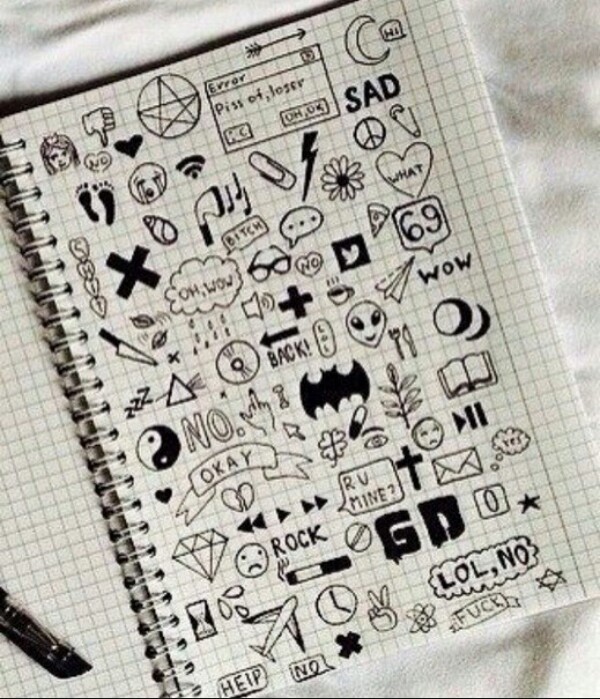 HI
Error
Piss of, loser
: C
UH, OK
SAD
NO
WHAT
BITCH
69
SHIT
OH, WOW
NO
WOW
BACK!
LOL
zzZ
NO.
Yes
OKAY
R U
MINE?
ROCK
GD
0
LOL, NO
FUCK
HELP
NO